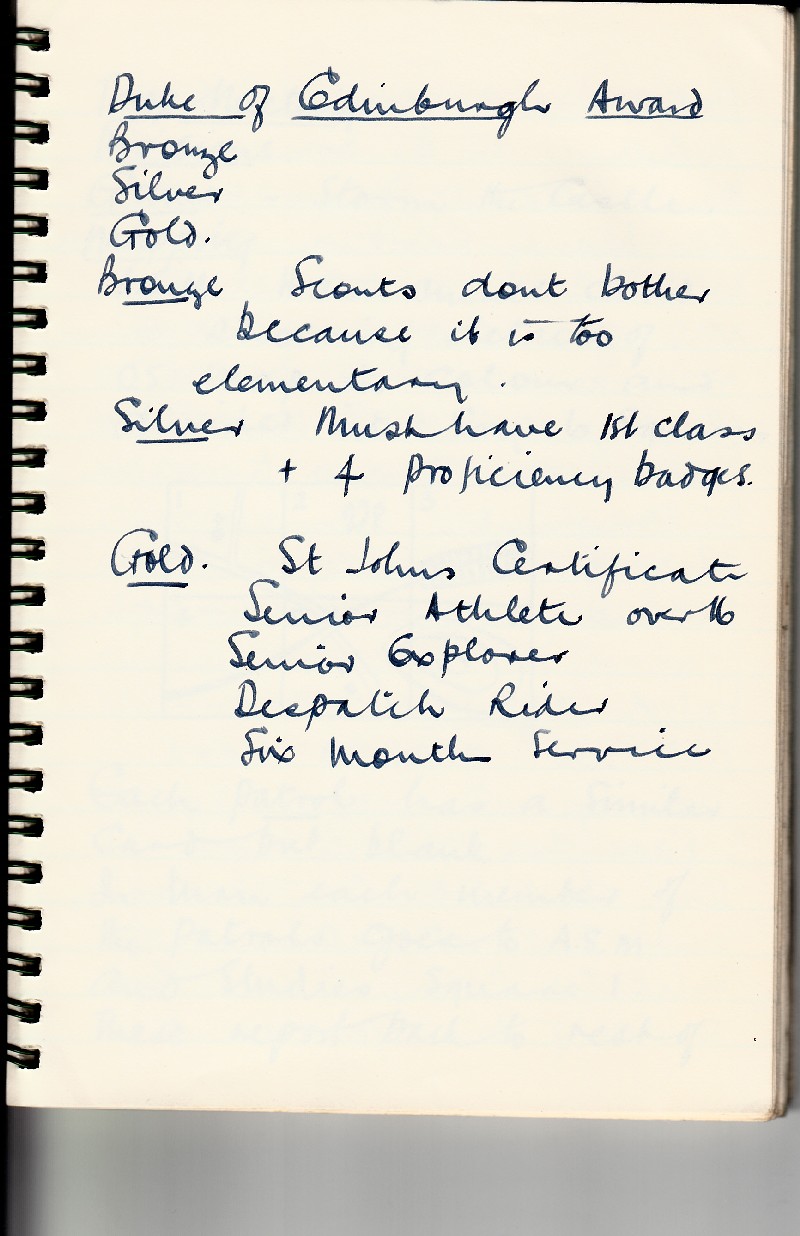 Duke of Edinburgh Award
Bronze
Silver
Gold.
Bronze Scouts dont bother
because it is too
elementary.
Silver Must have 1st class
+ 4 Proficiency badges.
Gold. St Johns Certificate
Senior Athlete over 16
Senior Explorer
Despatch Rider
Six Months Service